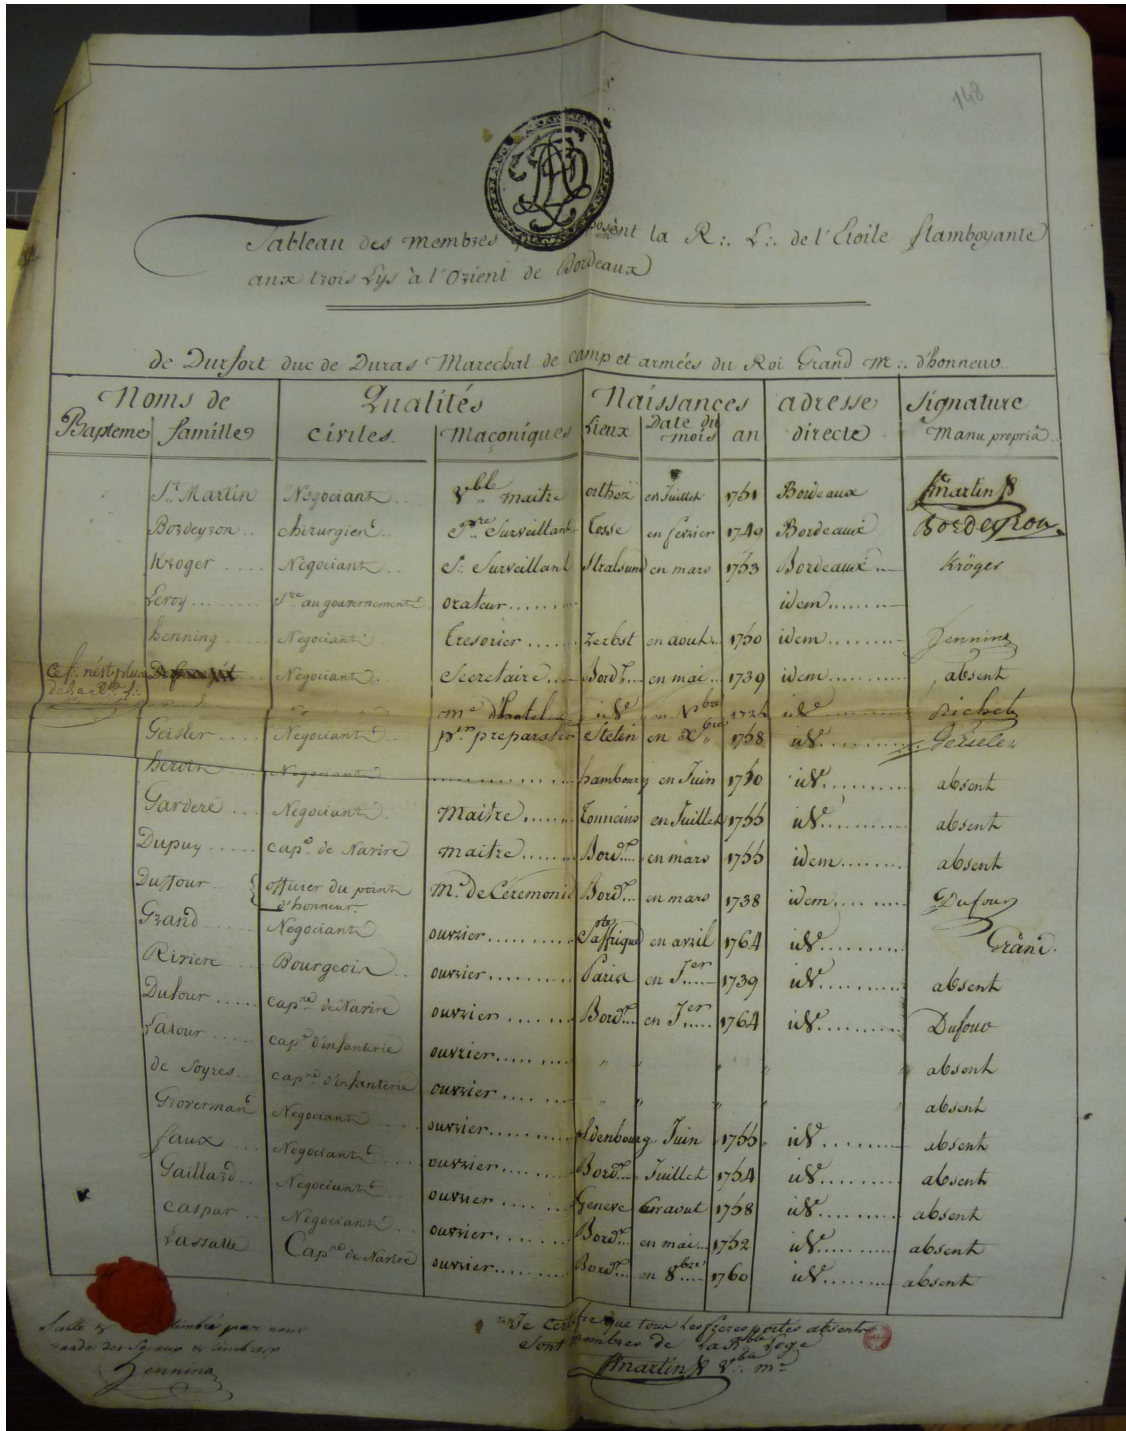 148
Tableau des membres posent la R∴ L∴ de l'Etoile flamboyante
aux trois Lys à l'Orient de Bordeaux
de Durfort duc de Duras Marechal de camp et armées du Roi Grand m∴ d'honneur
Noms de Qualités Naissances adresse Signature
Bapteme famille civiles Maçoniques Lieux Date du mois an directe Manu propriâ
St Martin Negociant Vble maitre orthez en Juillet 1751 Bordeaux Stmartin
Bordeyron chirurgien Pre Surveillant Cosse en fevrier 1749 Bordeaux Bordeyron
Kroger Négociant Sd Surveillant Stralsund en mars 1753 Bordeaux Kröger
Leroy Sre au gouvernement orateur idem
henning Negociant Tresorier Zerbst en aout 1750 idem Henning
ce f. n'est plus de la R L Negociant Secretaire Bordx en mai 1739 idem absent
me d'hotel id en Nbre id Richet
Geisler Negociant pn preparateur Stetin en Xbre 1758 id Geiseler
Negociant hambourg en Juin 1750 id absent
Garderé Negociant Maitre Tonneins en Juillet 1755 id absent
Dupuy capne de Navire maitre Bordx en mars 1755 idem absent
Duffour officier du point d'honneur Me de Ceremonie Bordx en mars 1738 idem Dufour
Grand Negociant ouvrier Ste affrique en avril 1764 id Grand
Riviere Bourgeois ouvrier Paris en Jer 1739 id absent
Dufour capne de Navire ouvrier Bordx en Jer 1764 id Dufour
Latour capne d'infanterie ouvrier " " " " absent
de Soyres capne d'infanterie ouvrier " " " " absent
Groverman Negociant ouvrier oldenbourg Juin 1755 id absent
faux Negociant ouvrier Bordx Juillet 1754 id absent
Gaillard Negociant ouvrier Geneve en aout 1758 id absent
caspar Negociant ouvrier Bordx en mai 1752 id absent
Lassalle Capne de Navire ouvrier Bordx en 8bre 1760 id absent
Je certifie que tous les freres portés absents
sont membres de La Rble Loge
Stmartin Vble me
timbré par nous
garde des Sceaux & timbres
Henning